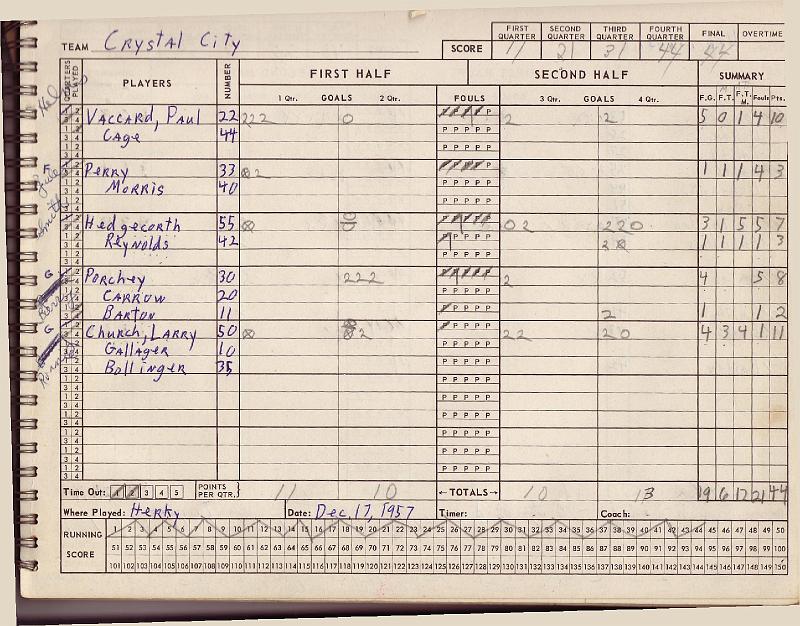 FIRST QUARTER SECOND QUARTER THIRD QUARTER FOURTH QUARTER FINAL OVERTIME
TEAM Crystal City SCORE 11 21 31 44 44
QUARTERS PLAYED PLAYERS NUMBER FIRST HALF SECOND HALF SUMMARY
1 Qtr. GOALS 2 Qtr. FOULS 3 Qtr. GOALS 4 Qtr. F.G. F.T. F.T. M. Fouls Pts.
VACCARD, PAUL 22 222 0 P 2 2 5 0 1 4 10
CAGE 44 P P P P P
PERRY 33 2 P 1 1 1 4 3
MORRIS 40 P P P P P
Hedgecorth 55 02 220 3 1 5 5 7
Reynolds 42 P P P P 2 1 1 1 1 3
Porchey 30 222 2 4 5 8
CARROW 20 P P P P P
BARTON 11 P P P P 2 1 1 2
Church, LARRY 50 2 P P P P 22 20 4 3 4 1 11
Gallager 10 P P P P P
Bollinger 35 P P P P P
Time Out: 1 2 3 4 5 POINTS PER QTR. 11 10 ←TOTALS→ 10 13 19 6 12 21 44
Where Played: Herky Date: Dec. 17, 1957 Timer: Coach:
RUNNING SCORE
1 2 3 4 5 6 7 8 9 10 11 12 13 14 15 16 17 18 19 20 21 22 23 24 25 26 27 28 29 30 31 32 33 34 35 36 37 38 39 40 41 42 43 44 45 46 47 48 49 50
51 52 53 54 55 56 57 58 59 60 61 62 63 64 65 66 67 68 69 70 71 72 73 74 75 76 77 78 79 80 81 82 83 84 85 86 87 88 89 90 91 92 93 94 95 96 97 98 99 100
101 102 103 104 105 106 107 108 109 110 111 112 113 114 115 116 117 118 119 120 121 122 123 124 125 126 127 128 129 130 131 132 133 134 135 136 137 138 139 140 141 142 143 144 145 146 147 148 149 150